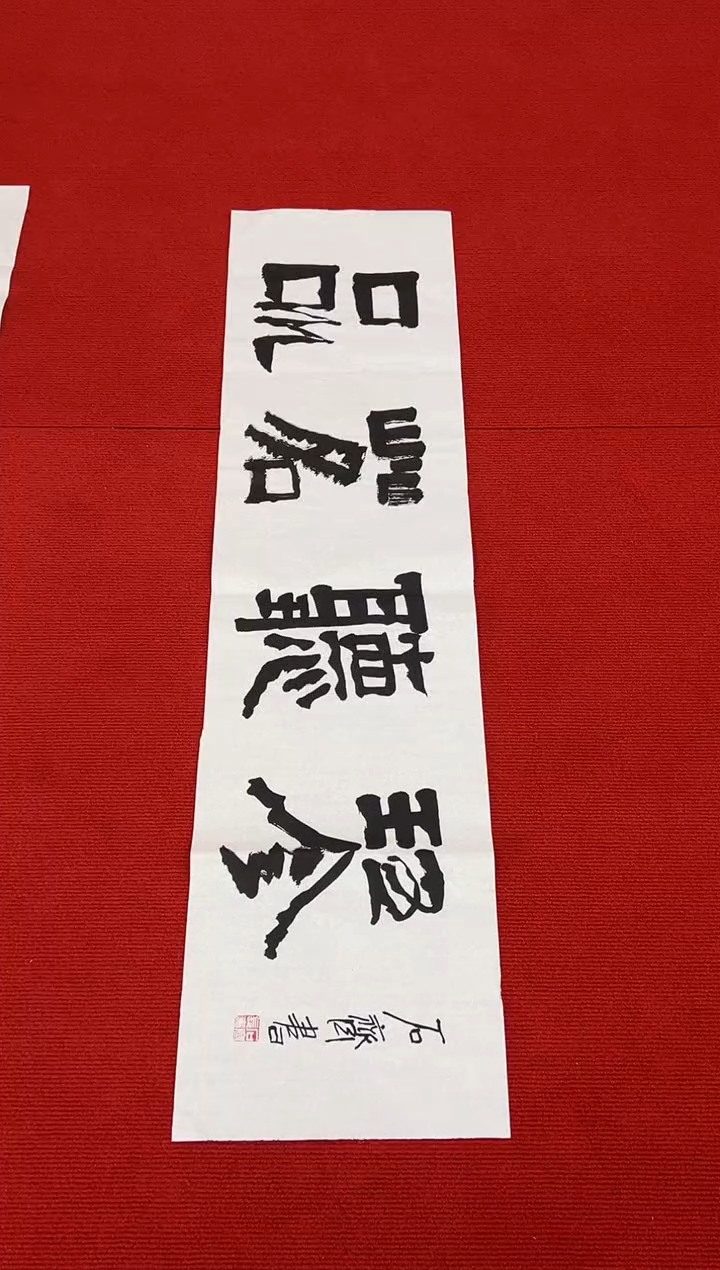 品茗聽琴
石齋書